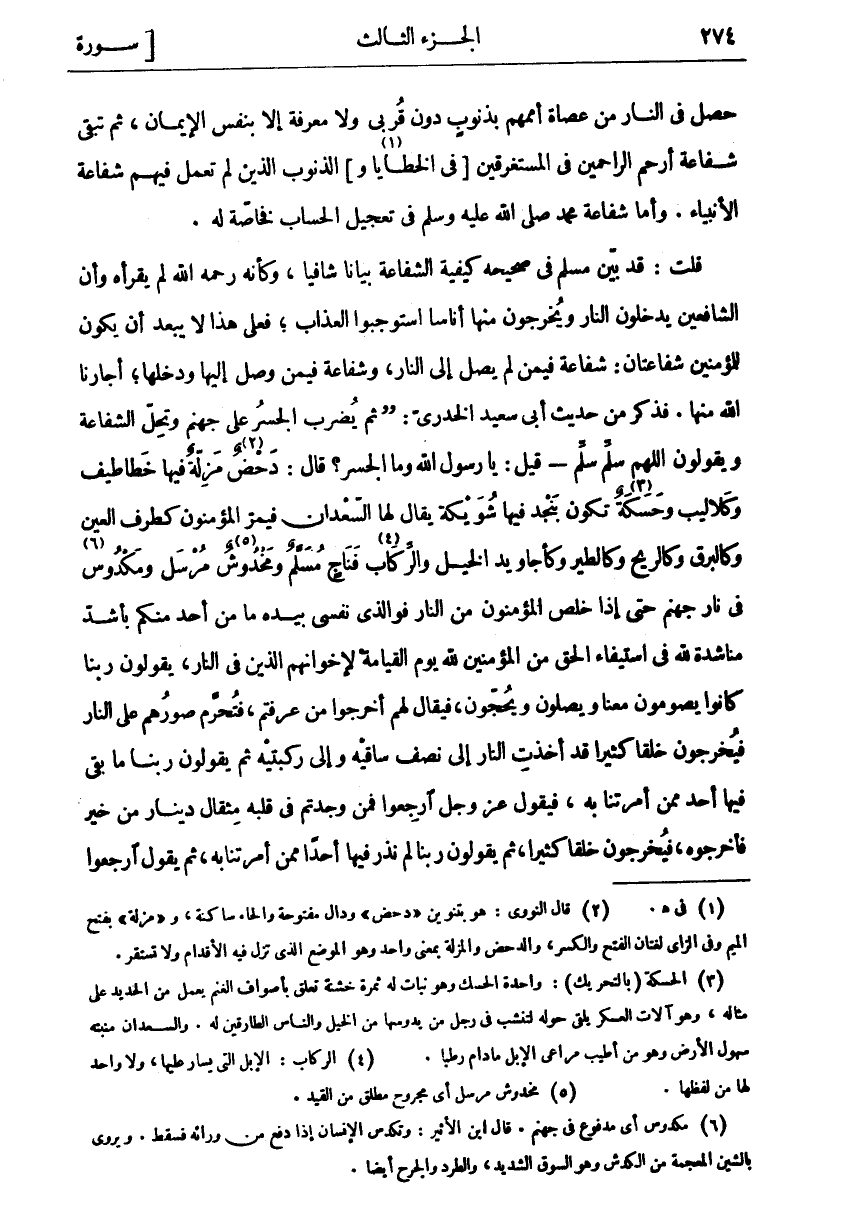 ٢٧٤ الجزء الثالث [ سورة
حصل فى النار من عصاة أممهم بذنوبٍ دون قُربى ولا معرفة إلا بنفس الإيمان ، ثم تبقى
شفاعة أرحم الراحمين فى المستغرقين [ فى الخطايا و ](١) الذنوب الذين لم تعمل فيهم شفاعة
الأنبياء . وأما شفاعة محمد صلى الله عليه وسلم فى تعجيل الحساب فخاصّة له .
قلت : قد بيّن مسلم فى صحيحه كيفية الشفاعة بيانا شافيا ، وكأنه رحمه الله لم يقرأه وأن
الشافعين يدخلون النار ويُخرجون منها أناسا استوجبوا العذاب ؛ فعلى هذا لا يبعد أن يكون
للمؤمنين شفاعتان : شفاعة فيمن لم يصل إلى النار ، وشفاعة فيمن وصل إليها ودخلها ؛ أجارنا
الله منها . فذكر من حديث أبى سعيد الخدرىّ : ”ثم يُضرب الجسرُ على جهنم وتحِلّ الشفاعة
ويقولون اللهم سلِّم سلِّم — قيل : يا رسول الله وما الجسر؟ قال : دَحْضٌ مَزِلّةٌ(٢) فيها خَطاطيف
وكَلاليب وحَسَكَةٌ(٣) تكون بَنجْد فيها شُوَيْكة يقال لها السَّعْدان فيمرّ المؤمنون كطرف العين
وكالبرق وكالريح وكالطير وكأجاويد الخيل والرِّكاب(٤) فَنَاجٍ مُسَلَّمٌ ومَخْدُوشٌ(٥) مُرْسَل ومَكْدُوس(٦)
فى نار جهنم حتى إذا خلص المؤمنون من النار فوالذى نفسى بيده ما من أحد منكم بأشدّ
مناشدة لله فى استيفاء الحق من المؤمنين لله يوم القيامة لإخوانهم الذين فى النار ، يقولون ربنا
كانوا يصومون معنا ويصلون ويُحجّون ، فيقال لهم أخرجوا من عرفتم ، فتُحرَّم صورُهم على النار
فيُخرجون خلقا كثيرا قد أخذتِ النار إلى نصف ساقيْه وإلى ركبتيْه ثم يقولون ربنا ما بقى
فيها أحد ممن أمرتنا به ، فيقول عز وجل آرجِعوا فمن وجدتم فى قلبه مِثقال دينار من خير
فأخرجوه ، فيُخرجون خلقا كثيرا ، ثم يقولون ربنا لم نذر فيها أحدًا ممن أمرتنا به ، ثم يقول آرجعوا
(١) فى ه . (٢) قال النووى : هو بتنوين «دحض» ودال مفتوحة والحاء ساكنة ، و «مزلة» بفتح
الميم وفى الزاى لغتان الفتح والكسر ، والدحض والمزلة بمعنى واحد وهو الموضع الذى تزل فيه الأقدام ولا تستقر .
(٣) الحسكة (بالتحريك) : واحدة الحسك وهو نبات له ثمرة خشنة تعلق بأصواف الغنم يعمل من الحديد على
مثاله ، وهو آلات العسكر يلقى حوله لتنشب فى رجل من يدوسها من الخيل والناس الطارقين له . والسعدان منبته
سهول الأرض وهو من أطيب مراعى الإبل مادام رطبا . (٤) الركاب : الإبل التى يسار عليها ، ولا واحد
لها من لفظها . (٥) مخدوش مرسل أى مجروح مطلق من القيد .
(٦) مكدوس أى مدفوع فى جهنم . قال ابن الأثير : وتكدس الإنسان إذا دفع من ورائه فسقط . ويروى
بالشين المعجمة من الكدش وهو السوق الشديد ، والطرد والجرح أيضا .